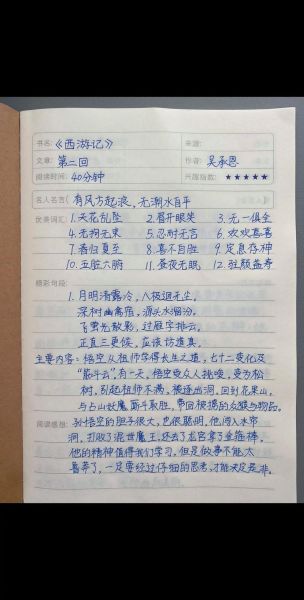 书名: 《西游记》 来源:
文章: 第二回 作者: 吴承恩
阅读时间: 40分钟 兴趣指数: ★★★★★
名人名言: 有风方起浪,无潮水自平
优美词汇: 1.天花乱坠 2.眉开眼笑 3.无一俱全
4.无拘无束 5.忍耐无言 6.欢欢喜喜
7.春归夏至 8.喜不自胜 9.定息存神
10.五脏六腑 11.昼夜无眠 12.驻颜益寿
精彩句段: 1.月明清露冷,八极迥无尘。
深树幽禽宿,源头水溜汾。
飞萤光散影,过雁字排云。
正直三更候,应该访道真。
主要内容: 悟空从祖师学得长生之道,七十二变化及
“筋斗云”。有一天,悟空受众人挑唆,变为松
树,引起祖师不满,被逐出洞,回到花果山,
与占山妖魔厮斗取胜,带回被掳的众猴与物品。
阅读感想: 孙悟空的胆子很大,也很聪明,他闯入水帘
洞,打败了混世魔王,还去了龙宫拿了金箍棒,
他的精神值得我们学习,但是做事不能太
鲁莽了,一定要经过仔细的思考,才能决定是非。